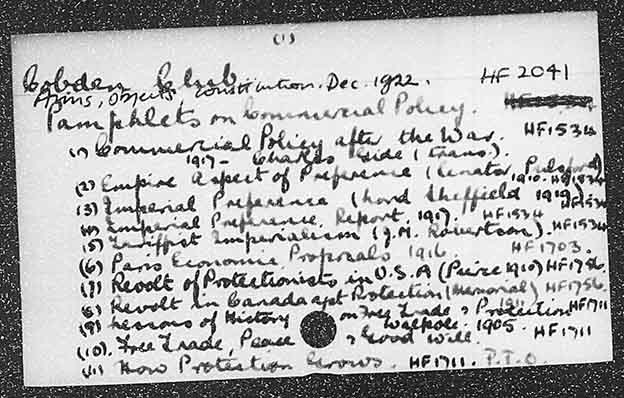 (1)
Cobden Club
Aims, Objects, Constitution. Dec. 1922. HF 2041
Pamphlets on Commercial Policy.
(1) Commercial Policy after the War. HF1534
1917 - Charles Gide (trans).
(2) Empire Aspect of Preference (Senator Pulsford)
1910. HF1534
(3) Imperial Preference (Lord Sheffield 1917) HF1534
(4) Imperial Preference, Report. 1917. HF1534
(5) Tariffist Imperialism (J.M. Robertson). HF1534
(6) Paris Economic Proposals 1916. HF1703.
(7) Revolt of Protectionists in U.S.A (Peirce 1910) HF1756.
(8) Revolt in Canada agst Protection (Memorial) HF1756
1911
(9) Lessons of History on Free Trade & Protection HF1711
Walpole. 1905.
(10). Free Trade, Peace & Good Will. HF1711
(11) How Protection Grows. HF1711. P.T.O.